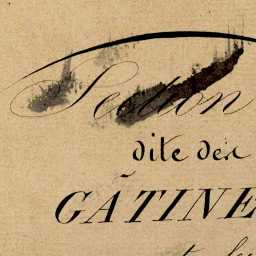 Section
dite des
GÃTINE